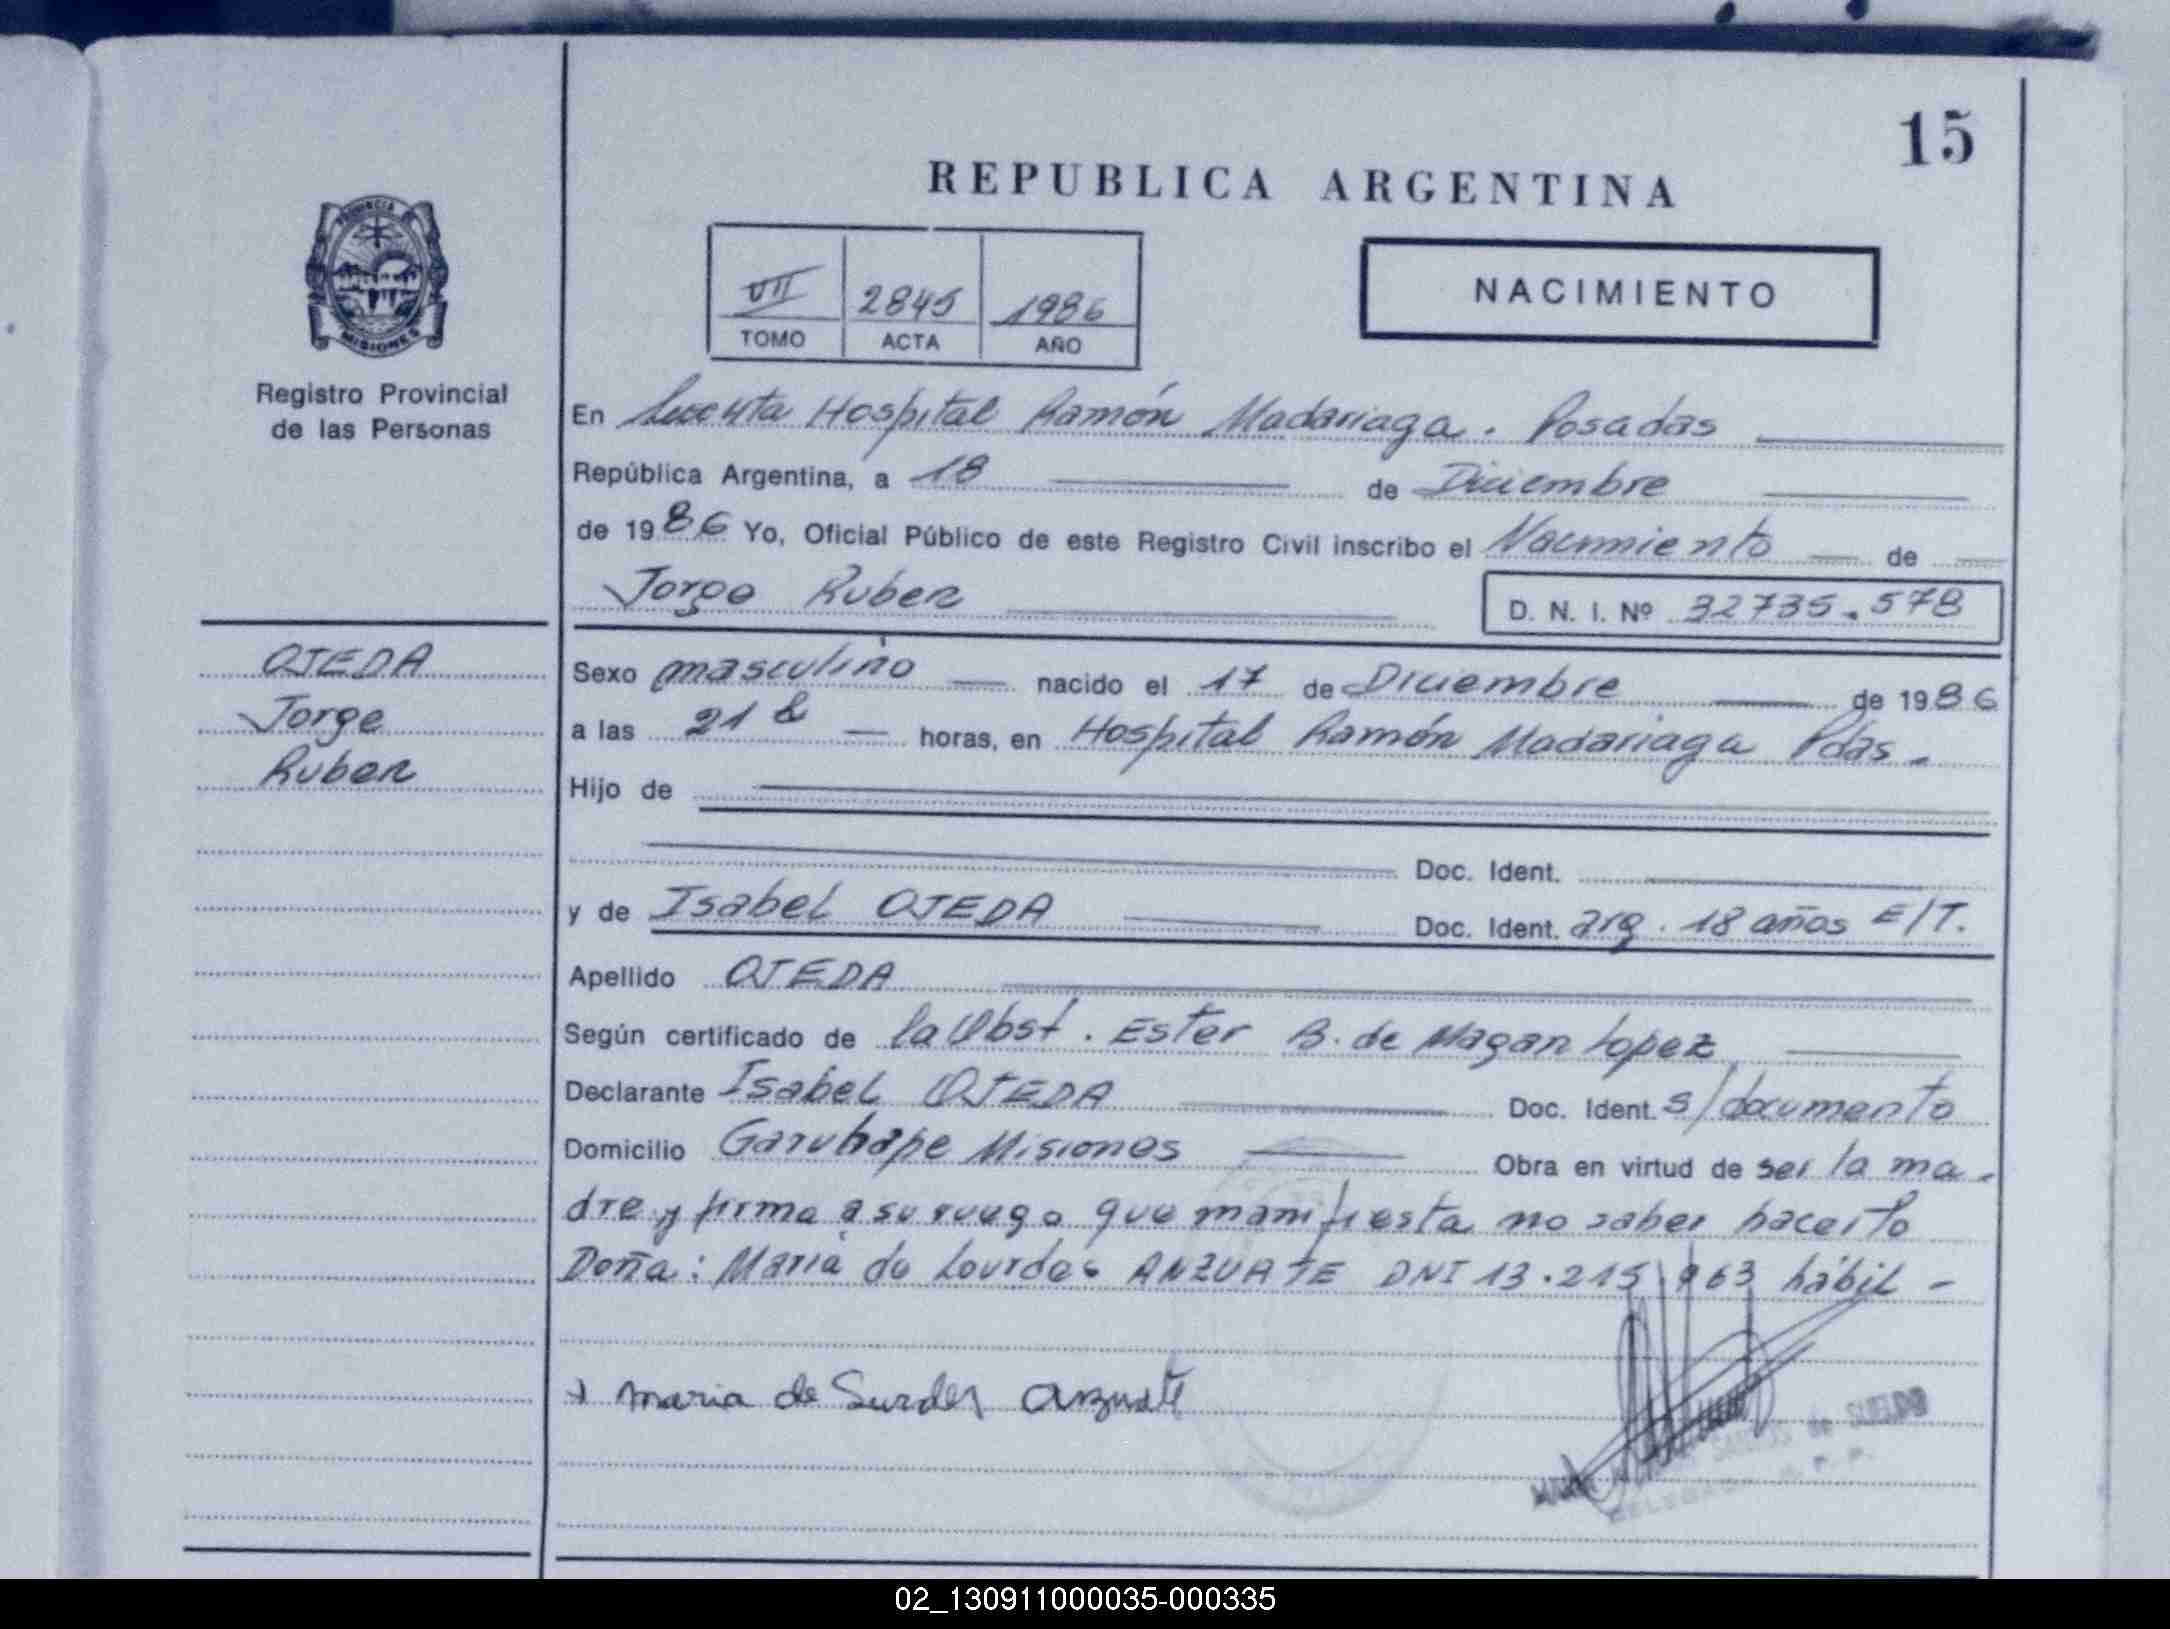 15
REPUBLICA ARGENTINA
PROVINCIA DE
MISIONES
Registro Provincial
de las Personas
VII 2845 1986
TOMO ACTA AÑO
NACIMIENTO
En Hospital Ramón Madariaga. Posadas
República Argentina, a 18 de Diciembre
de 1986 Yo, Oficial Público de este Registro Civil inscribo el Nacimiento de
Jorge Ruben D. N. I. Nº 32735.578
OJEDA
Jorge
Ruben
Sexo masculino nacido el 17 de Diciembre de 1986
a las 21 horas, en Hospital Ramón Madariaga Pdas.
Hijo de
Doc. Ident.
y de Isabel OJEDA Doc. Ident. arg. 18 años E/T.
Apellido OJEDA
Según certificado de la Obst. Ester B. de Magan Lopez
Declarante Isabel OJEDA Doc. Ident. s/documento
Domicilio Garuhape Misiones Obra en virtud de ser la ma-
dre y firma a su ruego que manifiesta no saber hacerlo
Doña: Maria de Lourdes ANZUATE DNI 13.215.963 hábil -
maria de Lurdes Anzuate
SANTOS de SUELDO
02_130911000035-000335